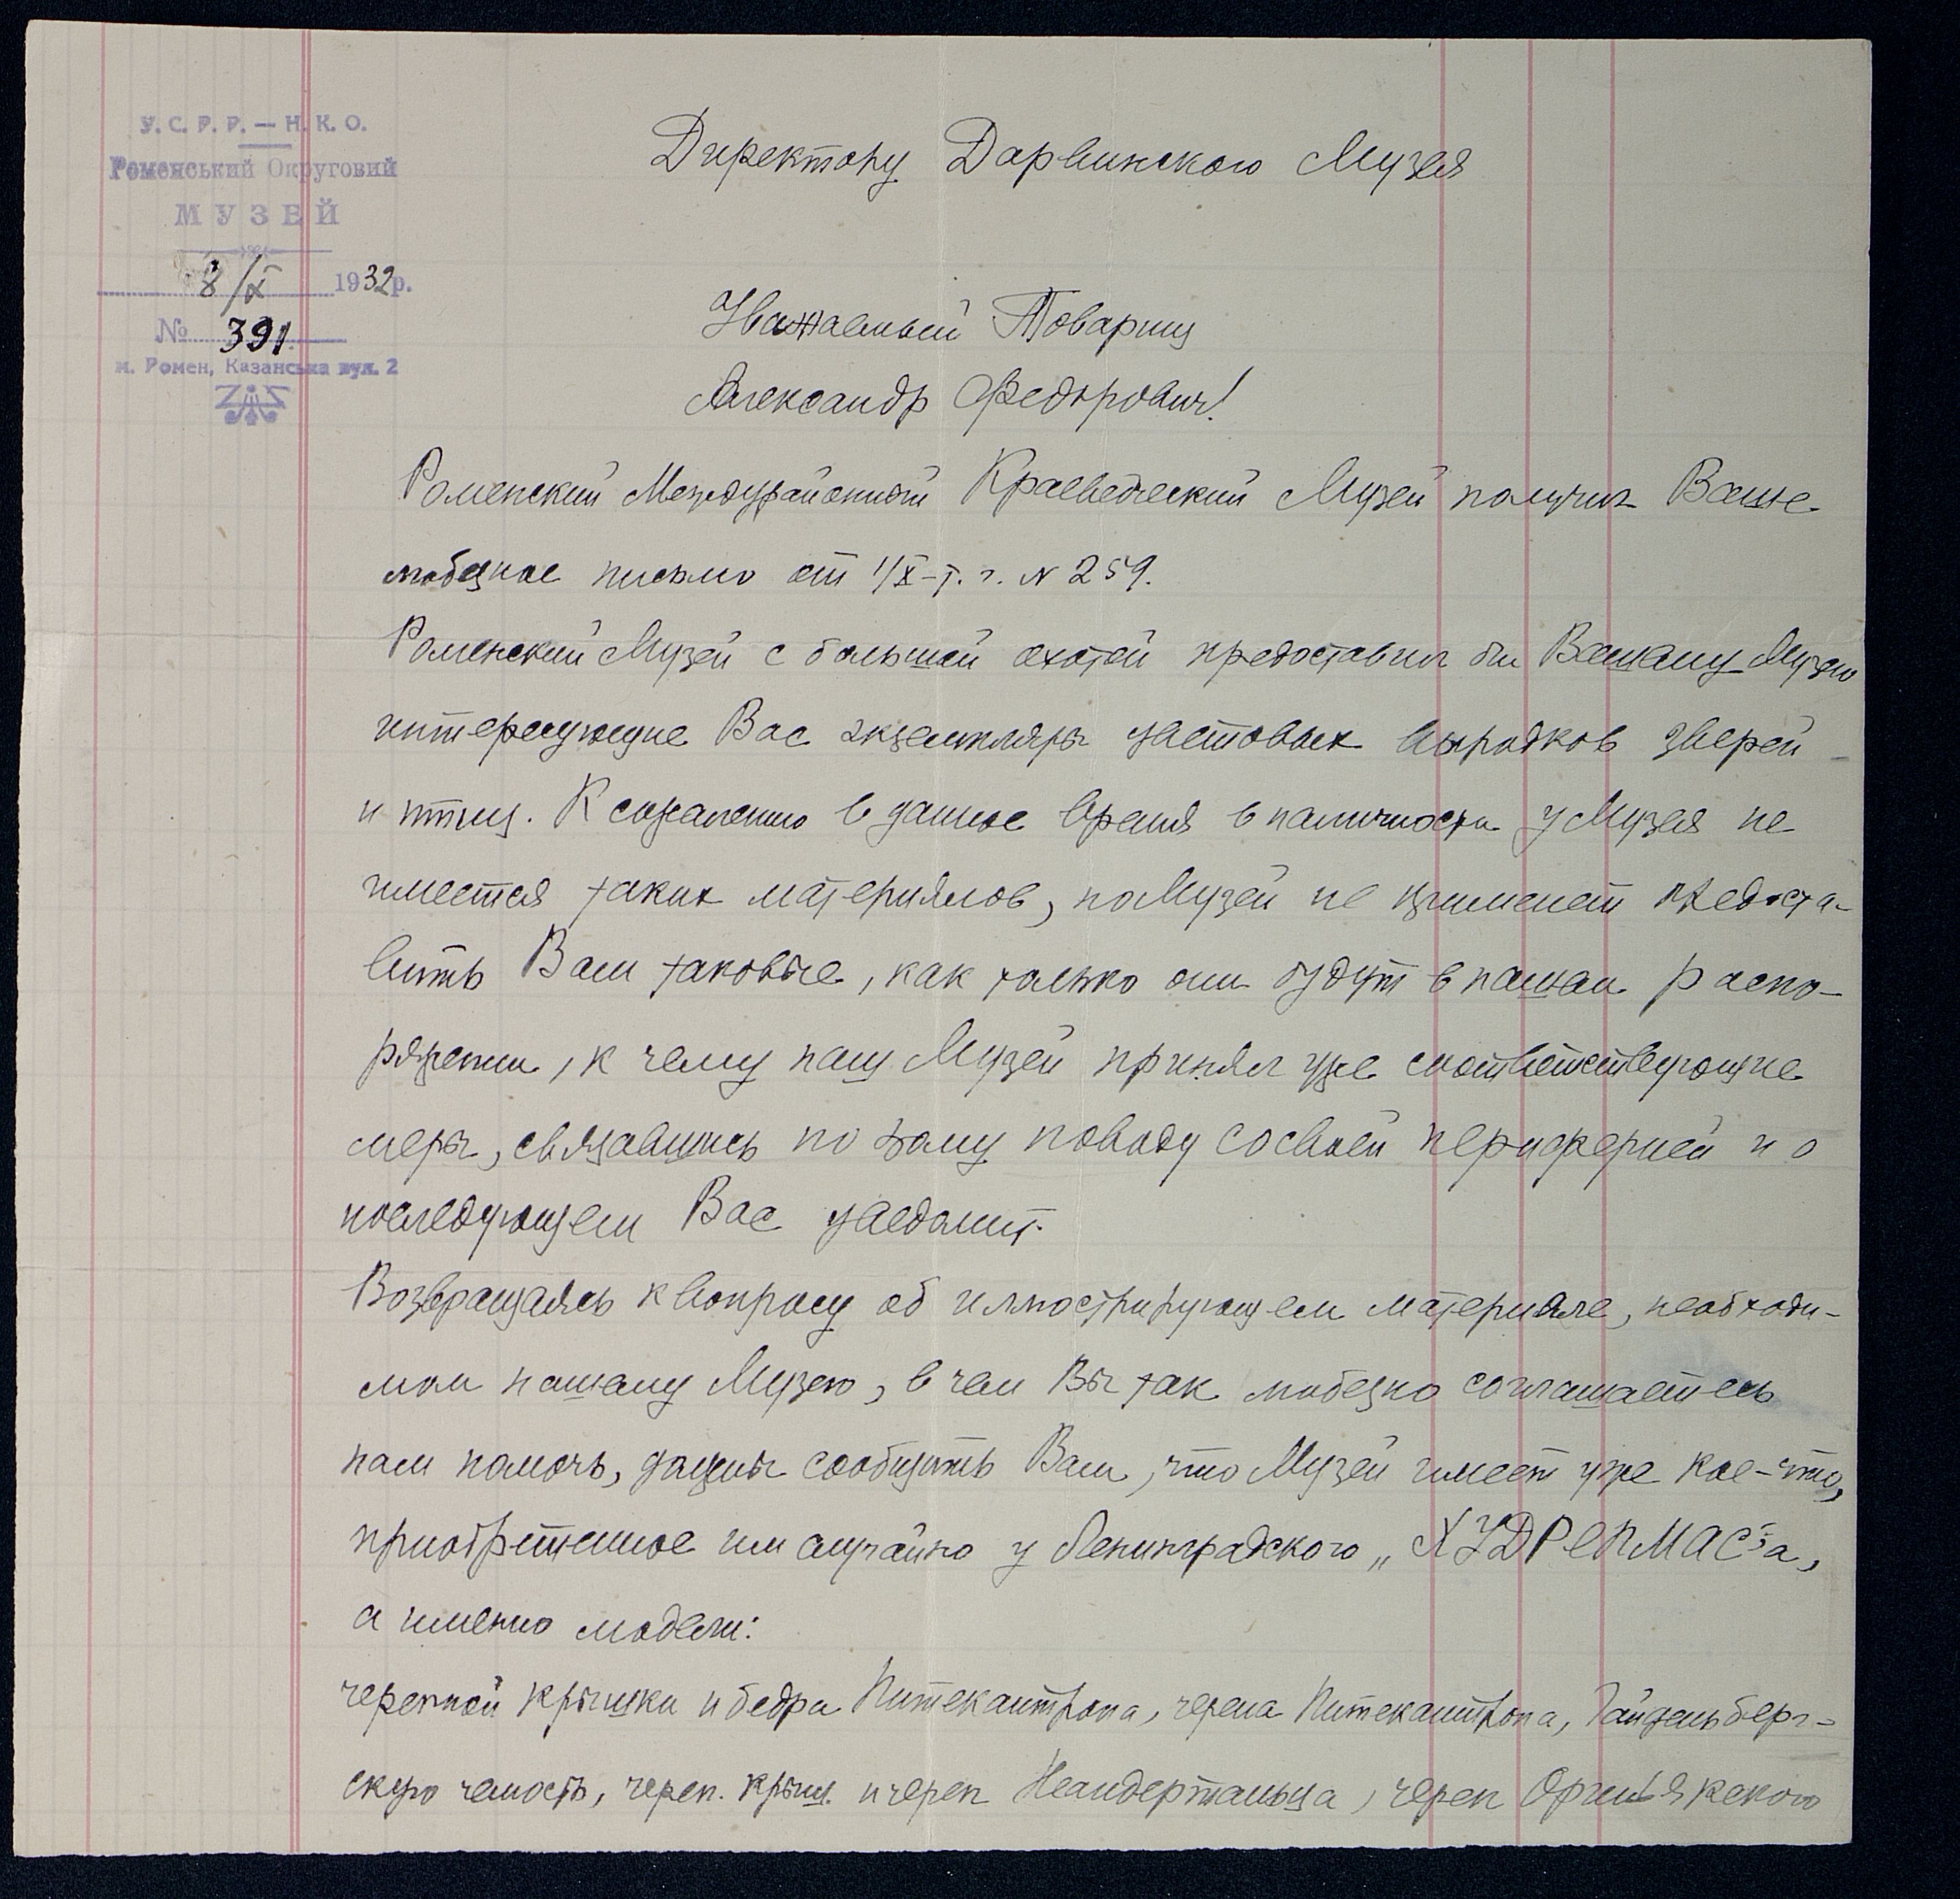 У.С.Р.Р. — Н.К.О.
Роменський Округовий
МУЗЕЙ
8/X 1932р.
№ 391
м. Ромен, Казанська вул. 2
Директору Дарвинского Музея
Уважаемый Товарищ
Александр Федорович!
Роменский Междурайонный Краеведческий Музей получил Ваше
любезное письмо от 1/X-т. г. N 259.
Роменский Музей с большой охотой предоставил бы Вашему Музею
интересующие Вас экземпляры цветовых выродков зверей
и птиц. К сожалению в данное время в наличности у Музея не
имеется таких материялов, но Музей не преминет предоста-
вить Вам таковые, как только они будут в нашем распо-
ряжении, к чему наш Музей принял уже соответствующие
меры, связавшись по этому поводу со своей периферией и о
последующем Вас уведомит.
Возвращаясь к вопросу об иллюстрирующем материяле, необходи-
мом нашему Музею, в чем Вы так любезно соглашаетесь
нам помочь, должны сообщить Вам, что Музей имеет уже кое-что,
приобретенное им случайно у Ленинградского „ХУДРЕПМАС"а,
а именно модели:
черепной крышки и бедра Питекантропа, черепа Питекантропа, Гайдельберг-
скую челюсть, череп. крыш. и череп Неандертальца, череп Ориньякского